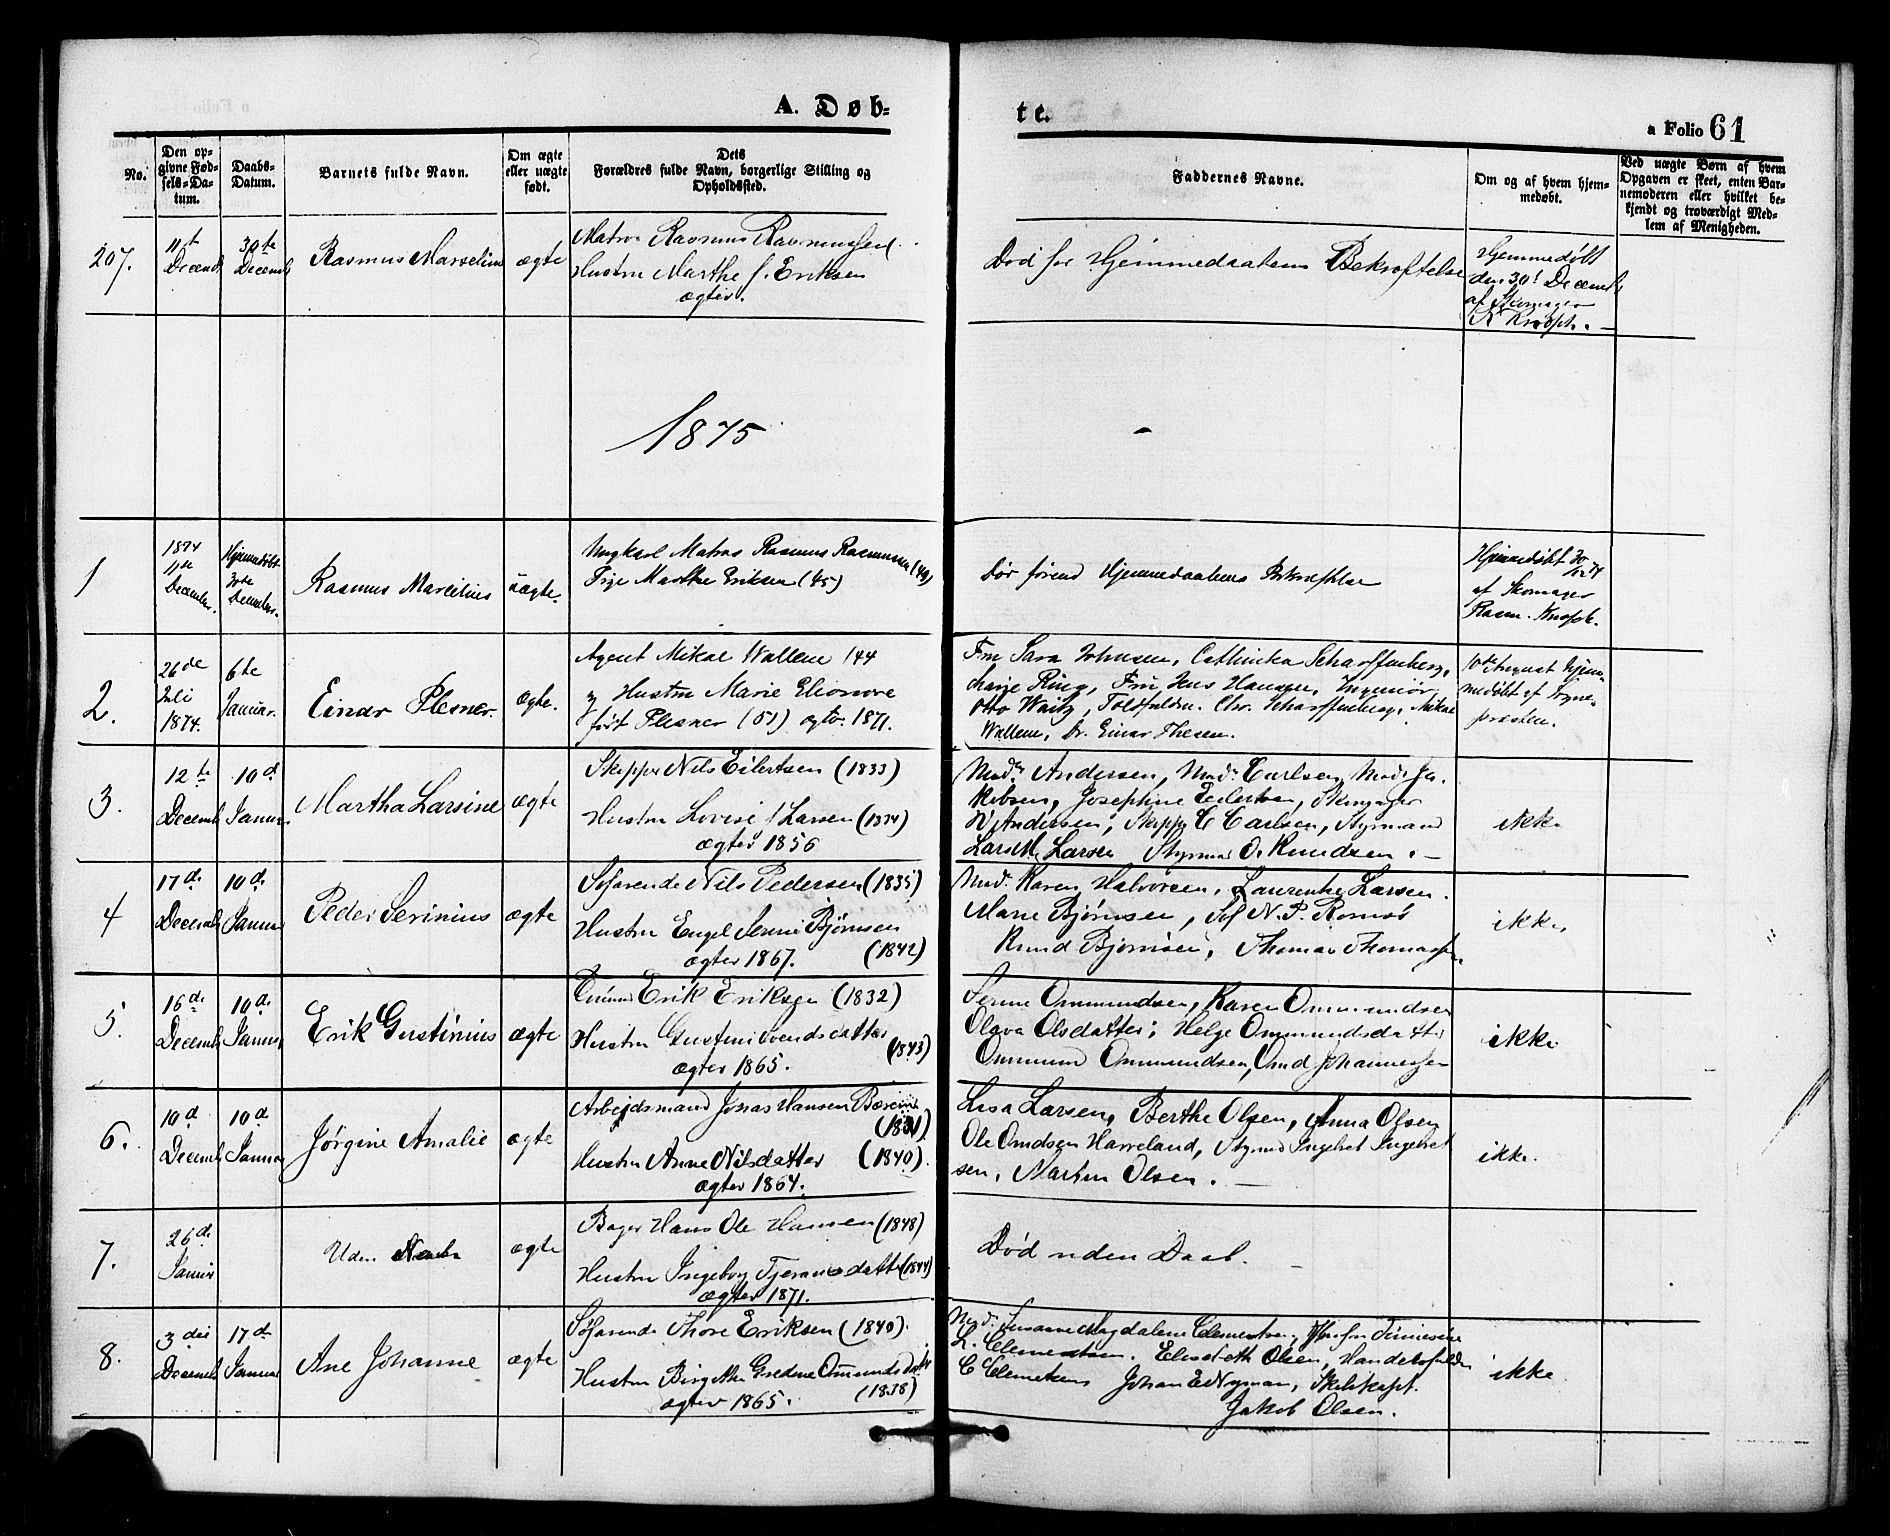 A. Døb=
te.
a Folio 61
No.
Den op=
givne Fød=
sels=Da=
tum.
Daabs=
Datum.
Barnets fulde Navn.
Om ægte
eller uægte
født.
Dets
Forældres fulde Navn, borgerlige Stilling og
Opholdssted.
Faddernes Navne.
Om og af hvem hjem=
medøbt.
Ved uægte Børn af hvem
Opgaven er skeet, enten Bar=
nemoderen eller hvilket be=
kjendt og troværdigt Med=
lem af Menigheden.
207.
11t
Decemb
30te
Decemb
Rasmus Marselius
ægte
Matros Rasmus Rasmussen
Hustru Marthe f. Eriksen
ægter.
Død før Hjemmedaabens Bekræftelse
Hjemmedøbt
den 30t Decemb
af Skomager
Knospk. —
1875
1
1874
11te
December.
Hjemmedøbt
30te
December.
Rasmus Marcelius
uægte.
Ungkarl Matros Rasmus Rasmussen (49)
Pige Marthe Eriksen (45)
Dør førend Hjemmedaabens Bekræftelse
Hjemmedøbt 30/12 74
af Skomager
Rasm.
2.
26de
Juli
1874.
6te
Januar.
Einar Plesner.
ægte.
Agent Mikal Wallem (44
og Hustru Marie Elionore
født Plesner (51) egtv. 1871.
Fru Sara Johnsen, Cathinka Scharffenberg,
Marie Ring, Fru Jens Hansen, Ingeniør
Otto Waitz, Toldfuldm. Chr. Scharffenberg, Mikal
Wallem, Dr. Einar Thesen.
10de August hjem-
medøbt af Sogne-
præsten.
3.
12te
Decemb
10d
Januar
Martha Larsine
ægte
Skipper Nils Eilertsen (1833)
Hustru Lovise f Larsen (1834)
ægter 1856
Mad. Andersen, Mad. Carlsen, Mad. Ja-
kobsen, Josephine Eilertsen, Skomager
N Andersen, Skipp C Carlsen, Styrmand
Lars M. Larsen Styrmd O. Knudsen. —
ikke
4
17d.
Decemb
10d.
Januar
Peder Serinius
ægte
Søfarende Nils Pedersen (1835)
Hustru Engel Serine Bjørnsen
ægter 1867. (1842)
Mad. Karen Halvorsen, Laurentse Larsen.
Marie Bjørnsen, Søf N. P. Romsø
Knud Bjørnsen, Thomas Thomassen.
ikke,
5.
16d.
Decemb
10d.
Januar
Erik Gustinius
ægte
Erik Eriksen (1832)
Hustru Gustine Svendsdatter
(1843)
ægter 1865.
Serine Ommundsen, Karen Ommundsen
Olava Olsdatter, Helge Ommundsdatter
Ommund Ommundsen, Omd Johannessen
ikke
6.
10d
Decemb
10d.
Januar
Jørgine Amalie
ægte
Arbejdsmand Jonas Hansen
(1831)
Hustru Anne Nilsdatter (1840).
ægter 1864.
Lisa Larsen, Berthe Olsen, Anna Olsen
Ole Omdsen Harreland, Styrmd Ingebret Ingebret
sen, Martin Olsen. —
ikke.
7.
26d.
Januar
Uden Navn
ægte
Bager Hans Ole Hansen (1848)
Hustru Ingeborg Tjeransdatter (1844)
ægter 1871.
Død uden Daab.
8.
3die
Decemb
17d
Januar
Ane Johanne
ægte
Søfarende Thore Eriksen (1840).
Hustru Birgitthe Gredine Omundsdatter
ægter 1865. (1838)
Mad. Susanne Magdalene Clementsen, Jfr
L. Clementsen. Elisabeth Olsen, Handelsfuldm
C Clementsen Johan E Nyman, Skibskapt.
Jakob Olsen.
ikke